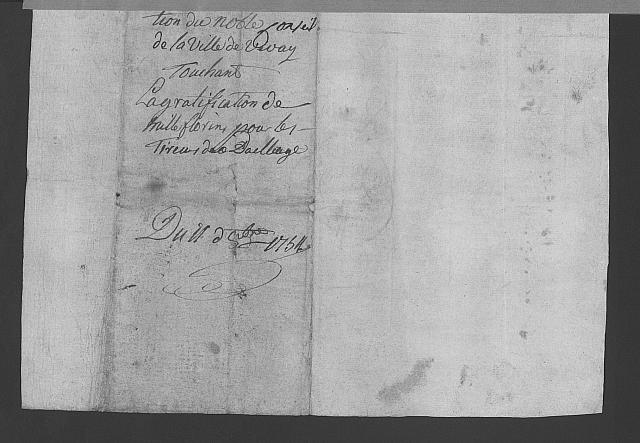 tion du noble Conseil
de la Ville de Vevay
Touchant
La gratification de
mille florins pour les
Tireurs de
Du 11 d 1754